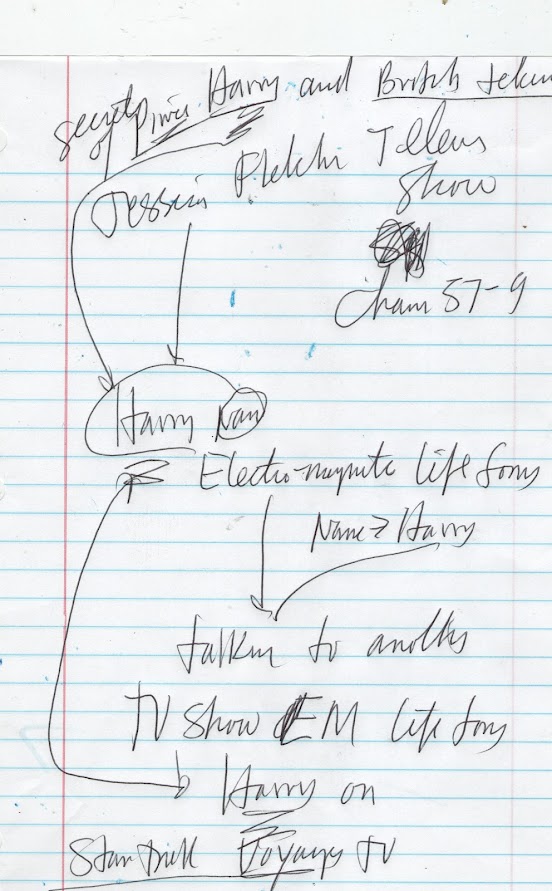 secrets of Princ Harry and British
Jessica
Show
Cham 57-9
Harry Nam
Electro-magnetic life form
Name = Harry
talkin to another
TV Show EM life form
Harry on
Star Trek Voyager TV